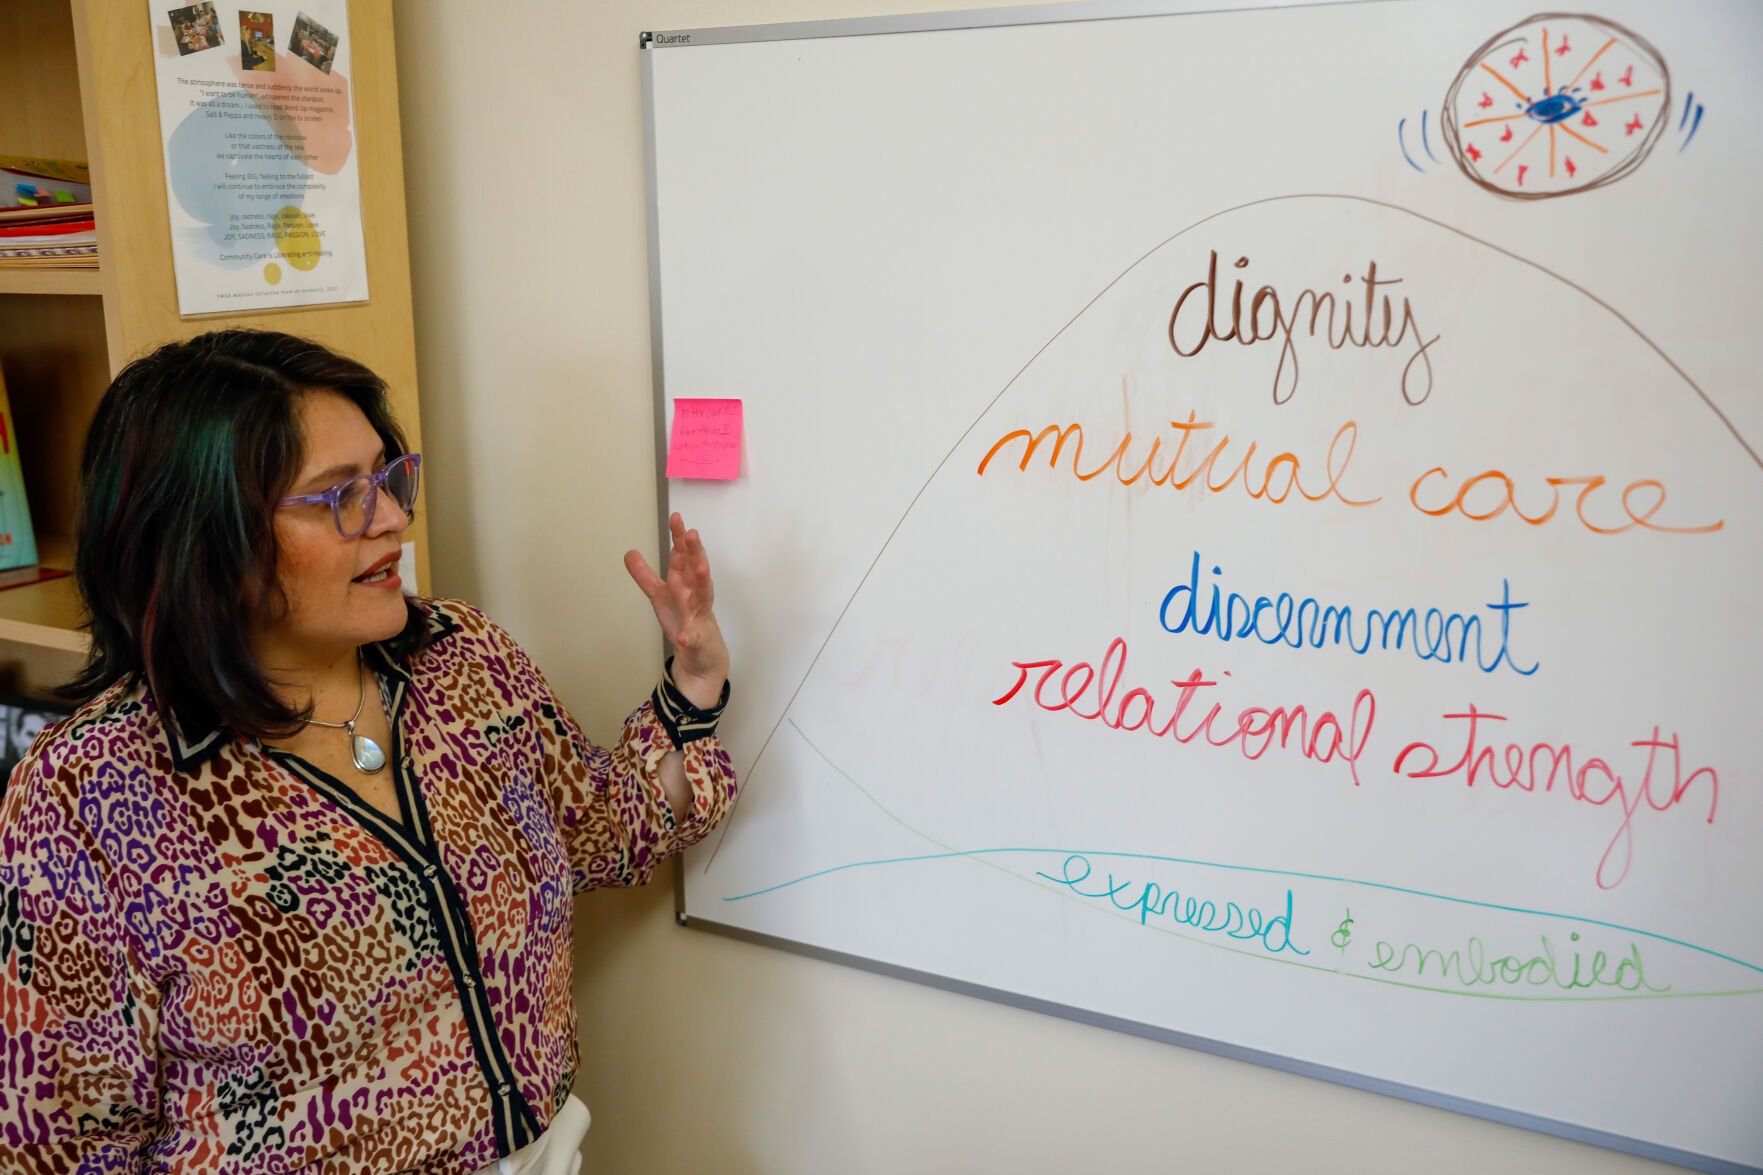 The atmosphere was tense and suddenly the world woke up,
"I want to be human", whispered the stardust.
It was all a dream... I used to read Word Up magazine,
Salt & Peppa and Heavy D on the tv screen
Like the colors of the rainbow
or that vastness of the sea
we captivate the hearts of each other
Feeling BIG, feeling to the fullest
I will continue to embrace the complexity
of my range of emotions
Joy, sadness, rage, passion, love
Joy, Sadness, Rage, Passion, Love
JOY, SADNESS, RAGE, PASSION, LOVE
Community Care is Liberating and Healing.
YWCA Madison Collective Poem on Humanity,
Quartet
dignity
mutual care
discernment
relational strength
expressed & embodied